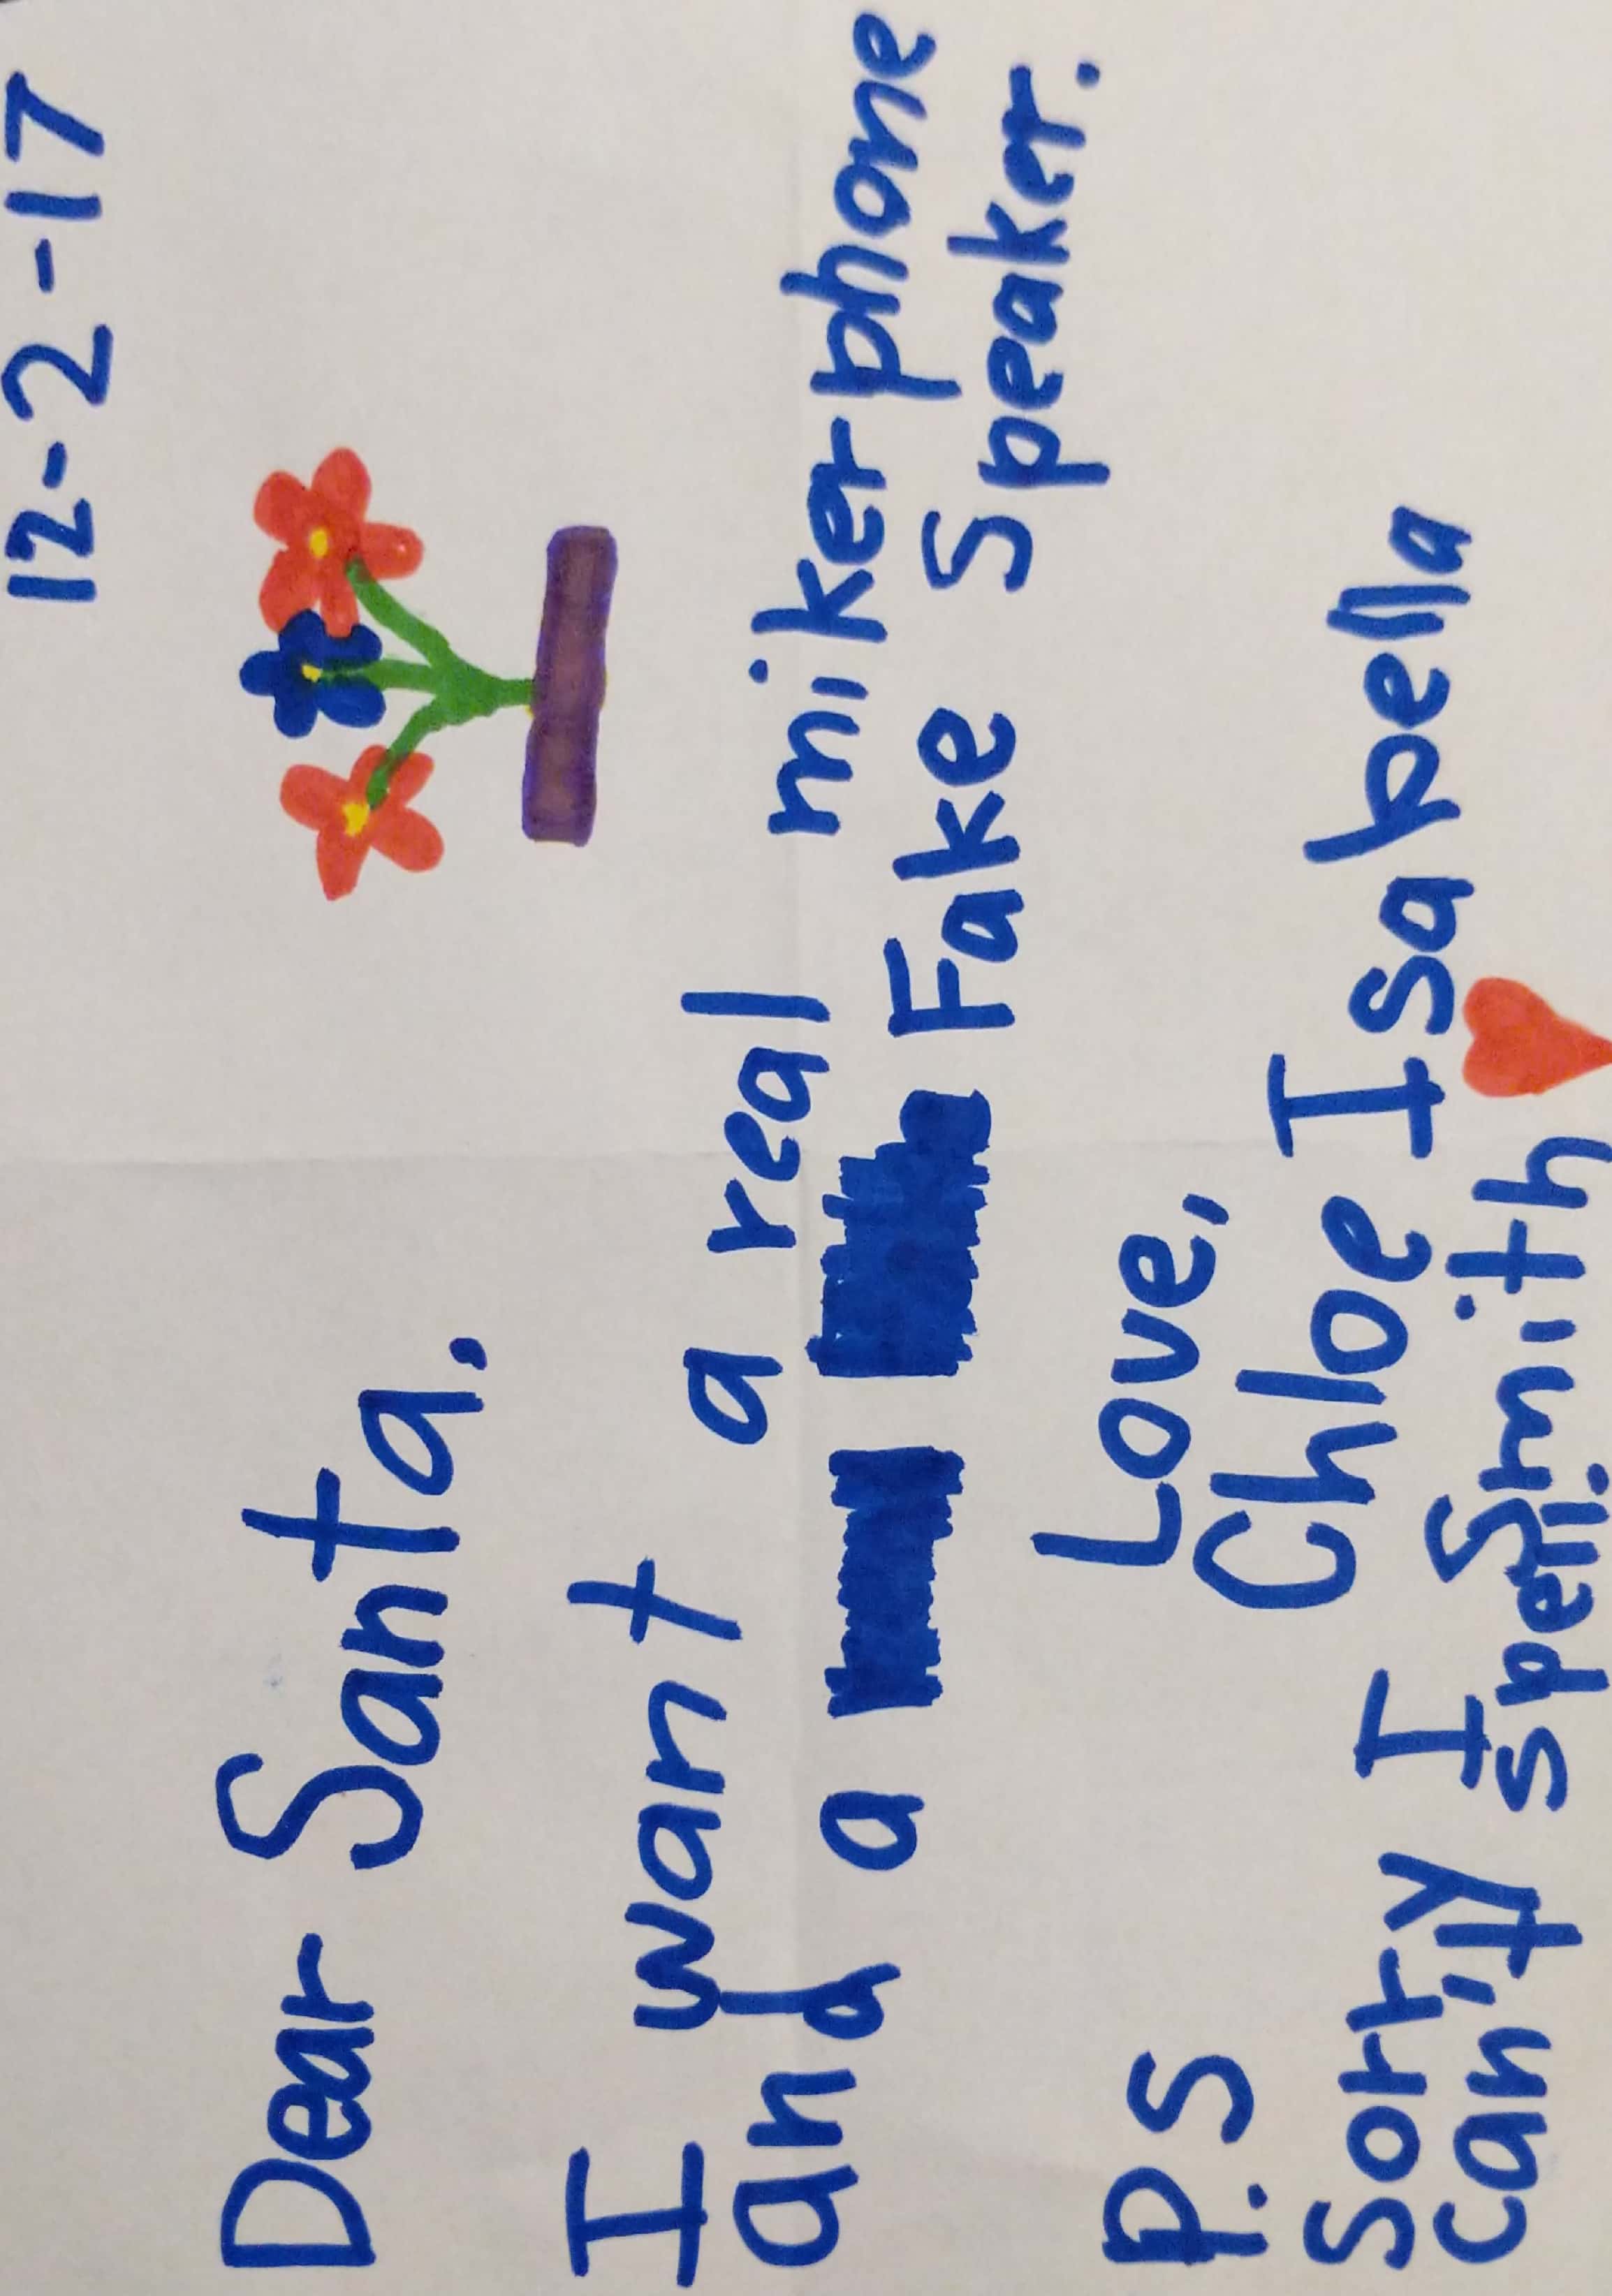 12-2-17
Dear Santa.
I want a real mikerphone
and a Fake Speaker.
Love,
Chloe Isabella
Smith
P.S
Sorry I
can't spell.